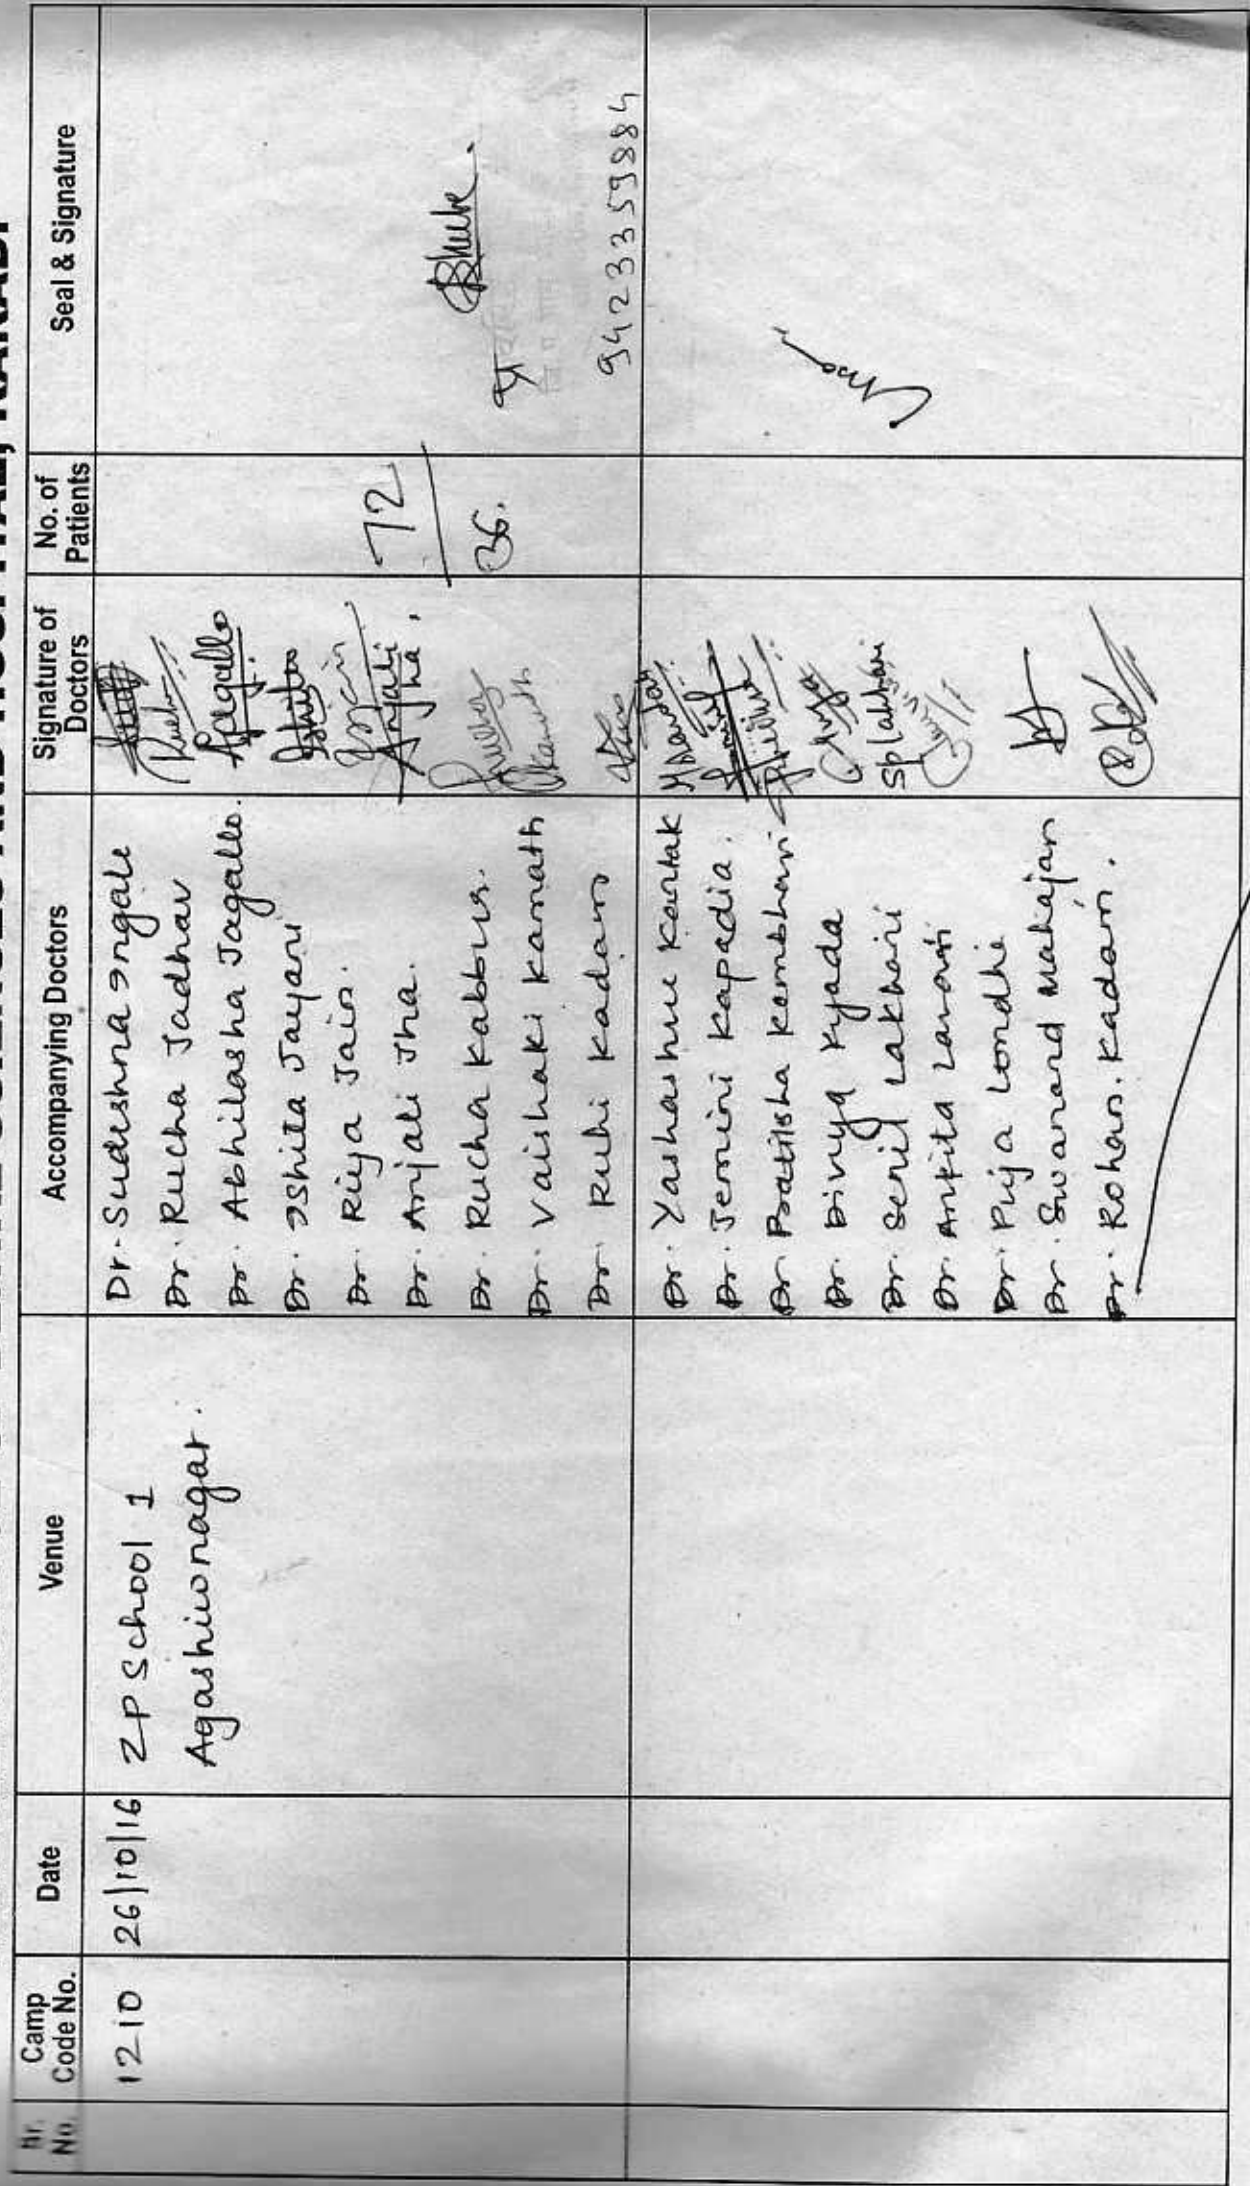 Sr. No.
Camp Code No.
Date
Venue
Accompanying Doctors
Signature of Doctors
No. of Patients
Seal & Signature
1210
26/10/16
ZP School 1
Agashiwnagar.
Dr. Sudeshna Ingale
Dr. Rucha Jadhav
Dr. Abhilasha Jagalle.
Dr. Ishita Jayani
Dr. Riya Jain.
Dr. Anjali Jha.
Dr. Rucha Kabbur.
Dr. Vaishaki Kamath
Dr. Ruhi Kadam
Anjali Jha.
72
36.
9423359884
Dr. Yashashree Kantak
Dr. Jemini Kapadia.
Dr. Pratiksha Kambhari
Dr. Divya Kyada
Dr. Senil Lakhani
Dr. Ankita Lanani
Dr. Puja Londhe
Dr. Swanand Mahajan
Dr. Rohan. Kadam.
splakhani